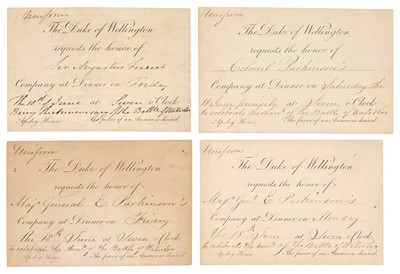 Uniform
The Duke of Wellington
requests the honor of
Sir Augustus Frazer's
Company at Dinner on Friday
The 18th of June at Seven o'Clock
Being the Anniversary of the Battle of Waterloo
Apsley House The favor of an Answer is desired.
Uniform
The Duke of Wellington
requests the honor of
Colonel Parkinson's
Company at Dinner on Saturday the
18 June precisely at Seven o'Clock
to celebrate the Anniv. of the Battle of Waterloo
Apsley House The favor of an Answer is desired.
Uniform
The Duke of Wellington
requests the honor of
Major General E Parkinson's
Company at Dinner on Friday
the 18th June at Seven o'Clock
to celebrate the Annivy. of the Battle of Waterloo
Apsley House The favor of an Answer is desired.
Uniform
The Duke of Wellington
requests the honor of
Majr. Genl. E Parkinson's
Company at Dinner on Monday
The 18th June at Seven o'Clock
to celebrate the of the Battle of Waterloo
Apsley House The favor of an Answer is desired.